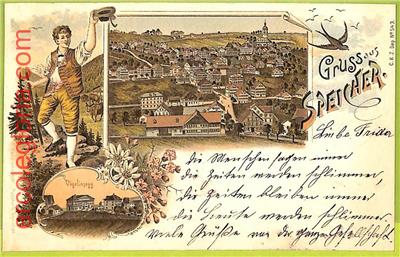 Gruss aus
SPEICHER.
C. K. Z. Dep. No 543.
Liebe Frieda
die Menschen sagen immer
die Zeiten werden schlimmer,
die Zeiten bleiben immer
die Leute werden schlimmer.
Viele Grüße von der ganzen Gesellschaft.
Vögelinsegg